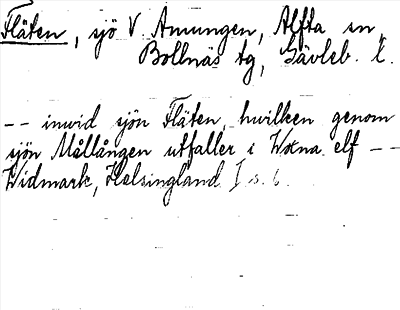 Fläten, sjö V Amungen, Alfta sn,
Bollnäs tg, Gävleb. l.
-- inwid sjön Fläten, hwilken genom
sjön Mållången utfaller i Woxna elf --
Widmark, Helsingland I s. 6.